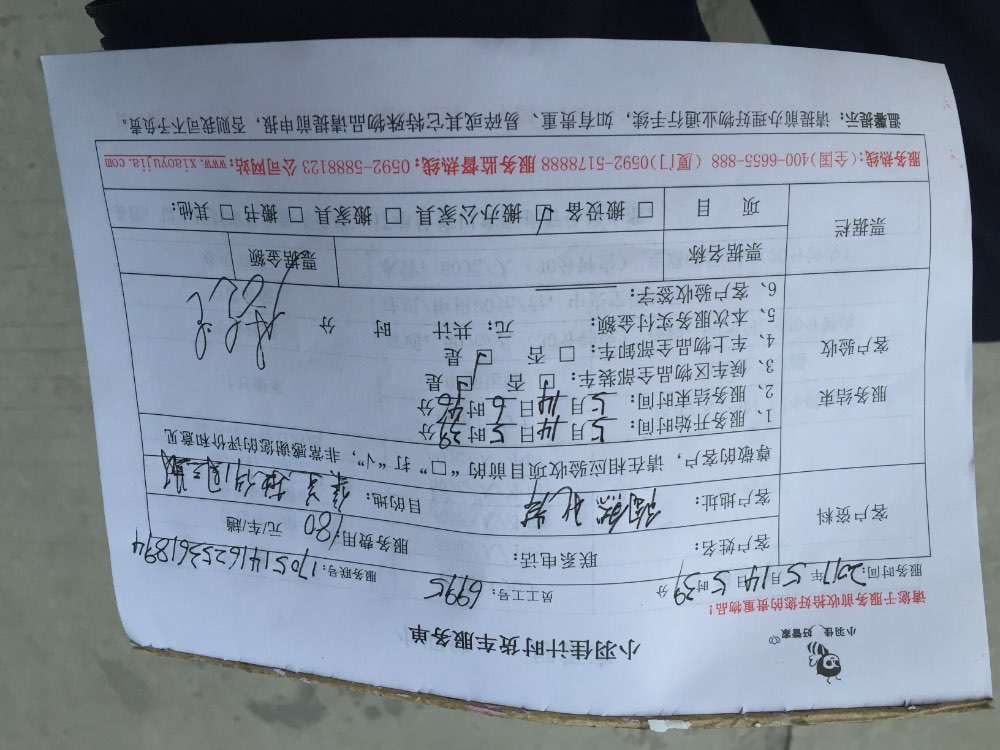 小羽佳 好管家
小羽佳计时货车服务单
请您于服务前收拾好您的贵重物品！
服务时间：2017年5月14日5时39分 员工工号：6995 服务联号：170514162536189​4
客户资料
客户姓名： 联系电话： 服务费用：180 元/车/趟
客户地址： 目的地：
尊敬的客户，请在相应验收项目前的“□”打“√”，非常感谢您的评价和意见
服务结束
客户验收
1、服务开始时间：5月14日5时39分
2、服务结束时间：5月14日6时40分
3、候车区物品全部装车： □ 否 ☑ 是
4、车上物品全部卸车： □ 否 ☑ 是
5、本次服务实付金额： 元；共计 时 分
6、客户验收签字：
票据栏
票据名称 票据金额
项 目 □ 搬设备 ☑ 搬办公家具 □ 搬家具 □ 搬书 □ 其他：
服务热线：(全国)400-6655-888 (厦门)0592-5178888 服务监督热线：0592-5888123 公司网站：www.xiaoyujia.com
温馨提示： 请提前办理好物业通行手续，如有贵重、易碎或其它特殊物品请提前申报，否则我司不予负责。